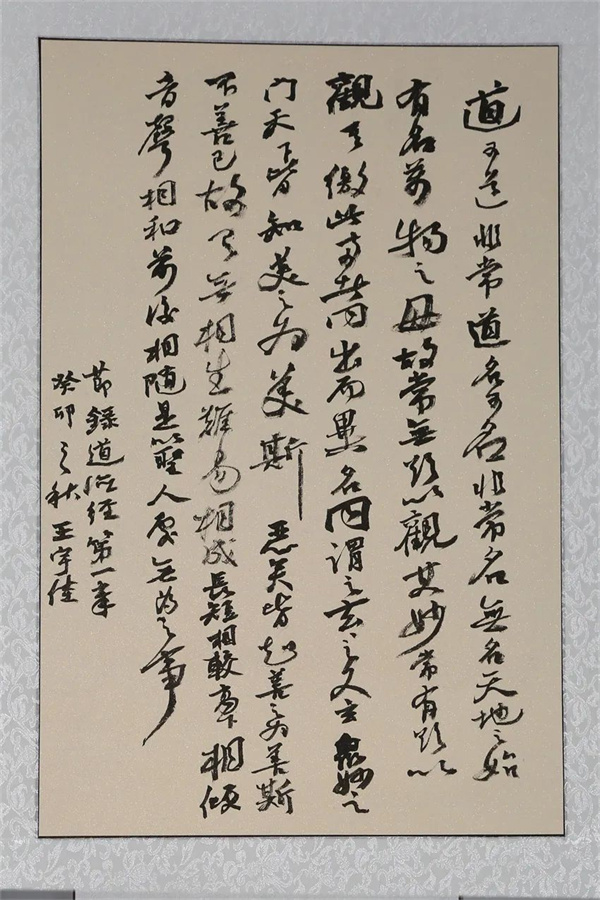 道可道非常道名可名非常名無名天地之始
有名萬物之母故常無欲以觀其妙常有欲以
觀其徼此兩者同出而異名同謂之玄之又玄眾妙之
門天下皆知美之为美斯惡矣皆知善之为善斯
不善已故有無相生難易相成長短相較高下相傾
音聲相和前後相隨是以聖人處無為之事
節錄道德經第一章
癸卯之秋王宇佳